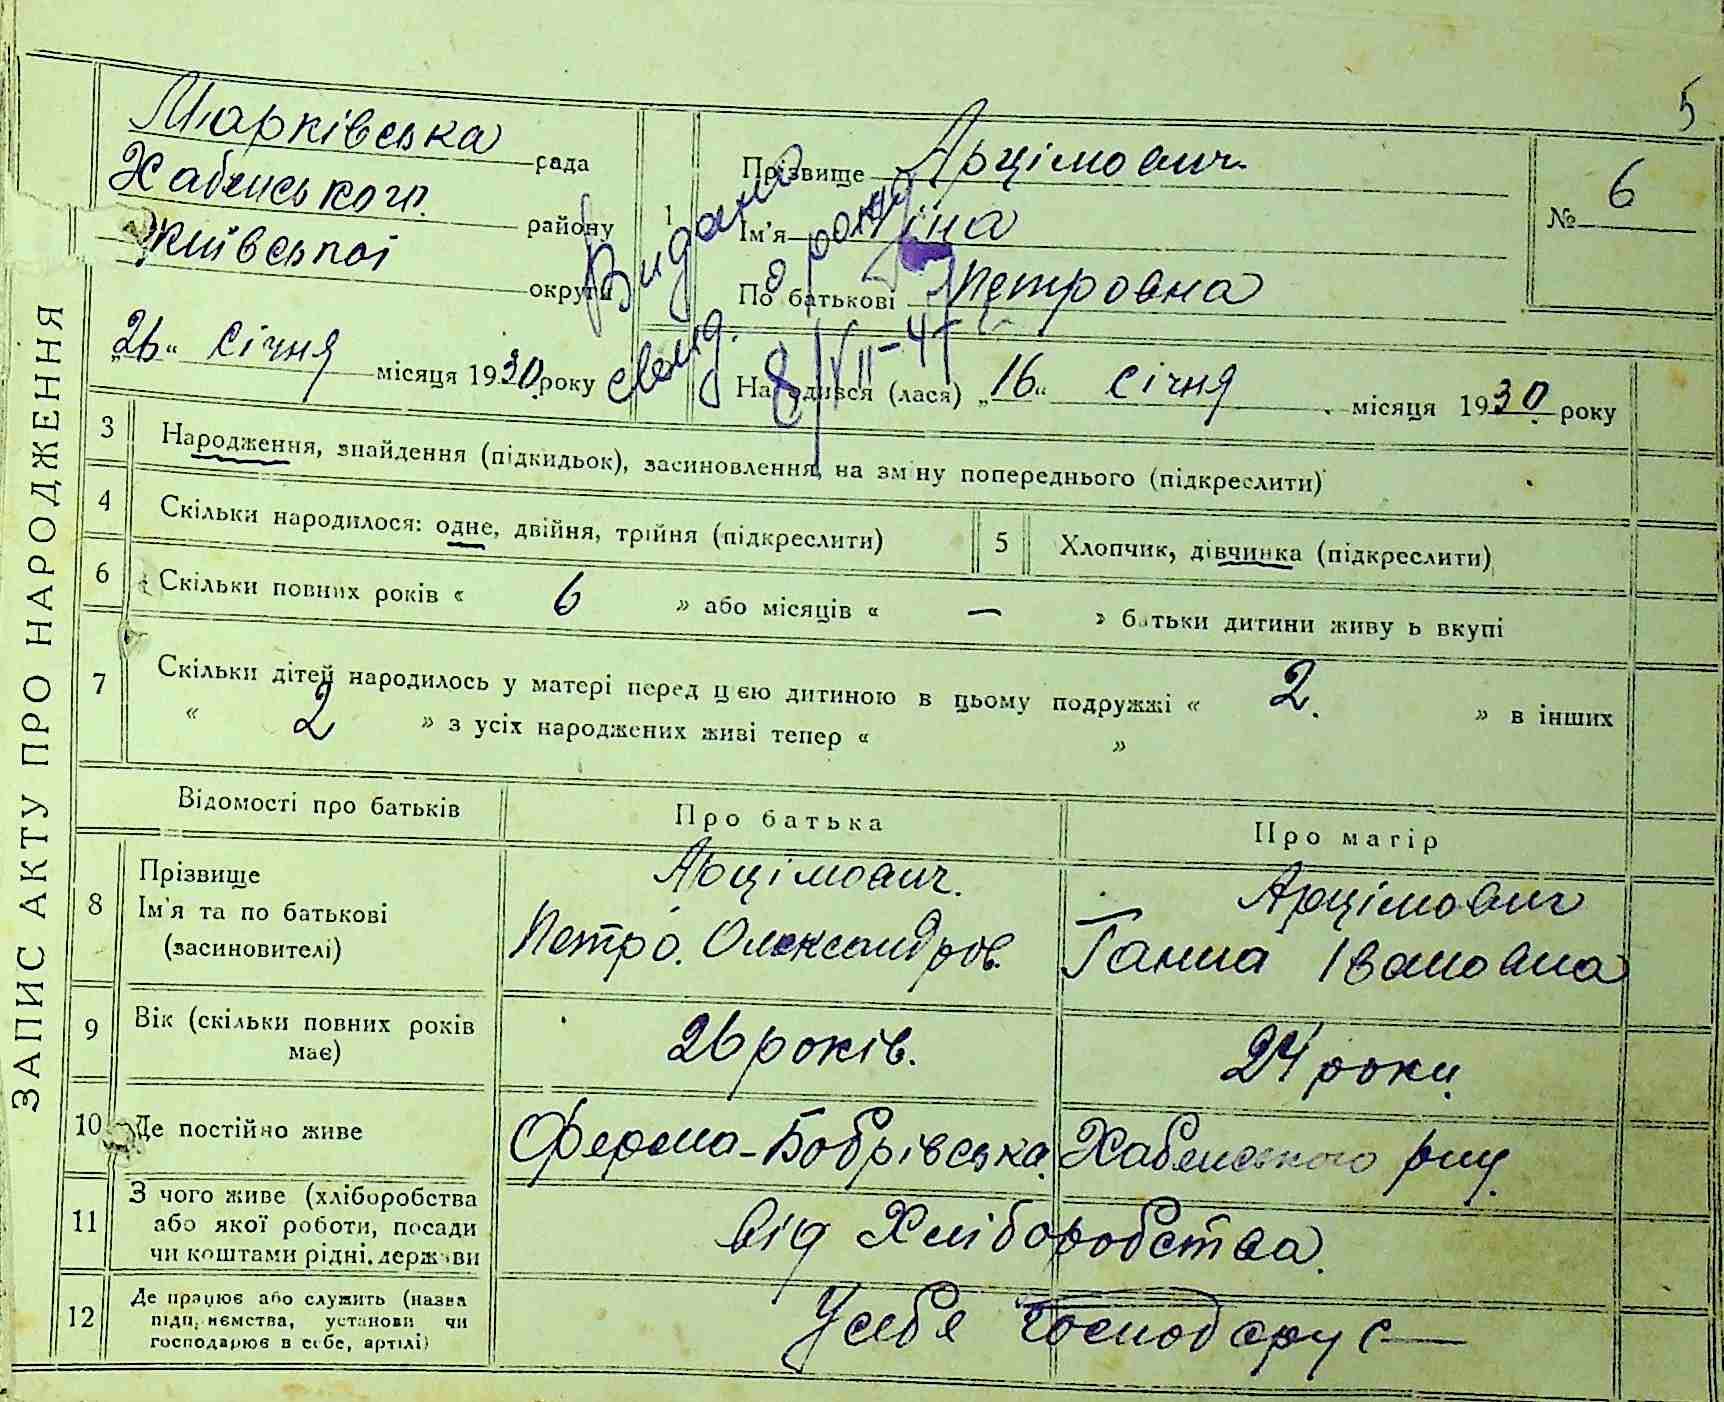 5
ЗАПИС АКТУ ПРО НАРОДЖЕННЯ
Марківська рада
Хабенського району
Київської округи
„26“ січня місяця 1930 року
1
Прізвище Арцімович
Ім'я
По батькові Петровна
№ 6
Видано
свид.
8/VII-41
Народився (лася) „16“ січня місяця 1930 року
3 Народження, знайдення (підкидьок), засиновлення, на зміну попереднього (підкреслити)
4 Скільки народилося: одне, двійня, трійня (підкреслити)
5 Хлопчик, дівчинка (підкреслити)
6 Скільки повних років « 6 » або місяців « — » батьки дитини живуть вкупі
7 Скільки дітей народилось у матері перед цією дитиною в цьому подружжі « 2. » в інших
« 2 » з усіх народжених живі тепер « »
Відомості про батьків
Про батька
Про матір
8 Прізвище
Ім'я та по батькові
(засиновителі)
Арцімович.
Петро. Олександров.
Арцімович
Ганна Івановна
9 Вік (скільки повних років
має)
26 років.
24 роки
10 Де постійно живе
Ферма-Бобрівська Хабенського рну.
11 З чого живе (хліборобства
або якої роботи, посади
чи коштами рідні, держави
від Хліборобства.
12 Де працює або служить (назва
підприємства, установи чи
господарює в себе, артілі)
Усебя Господарує